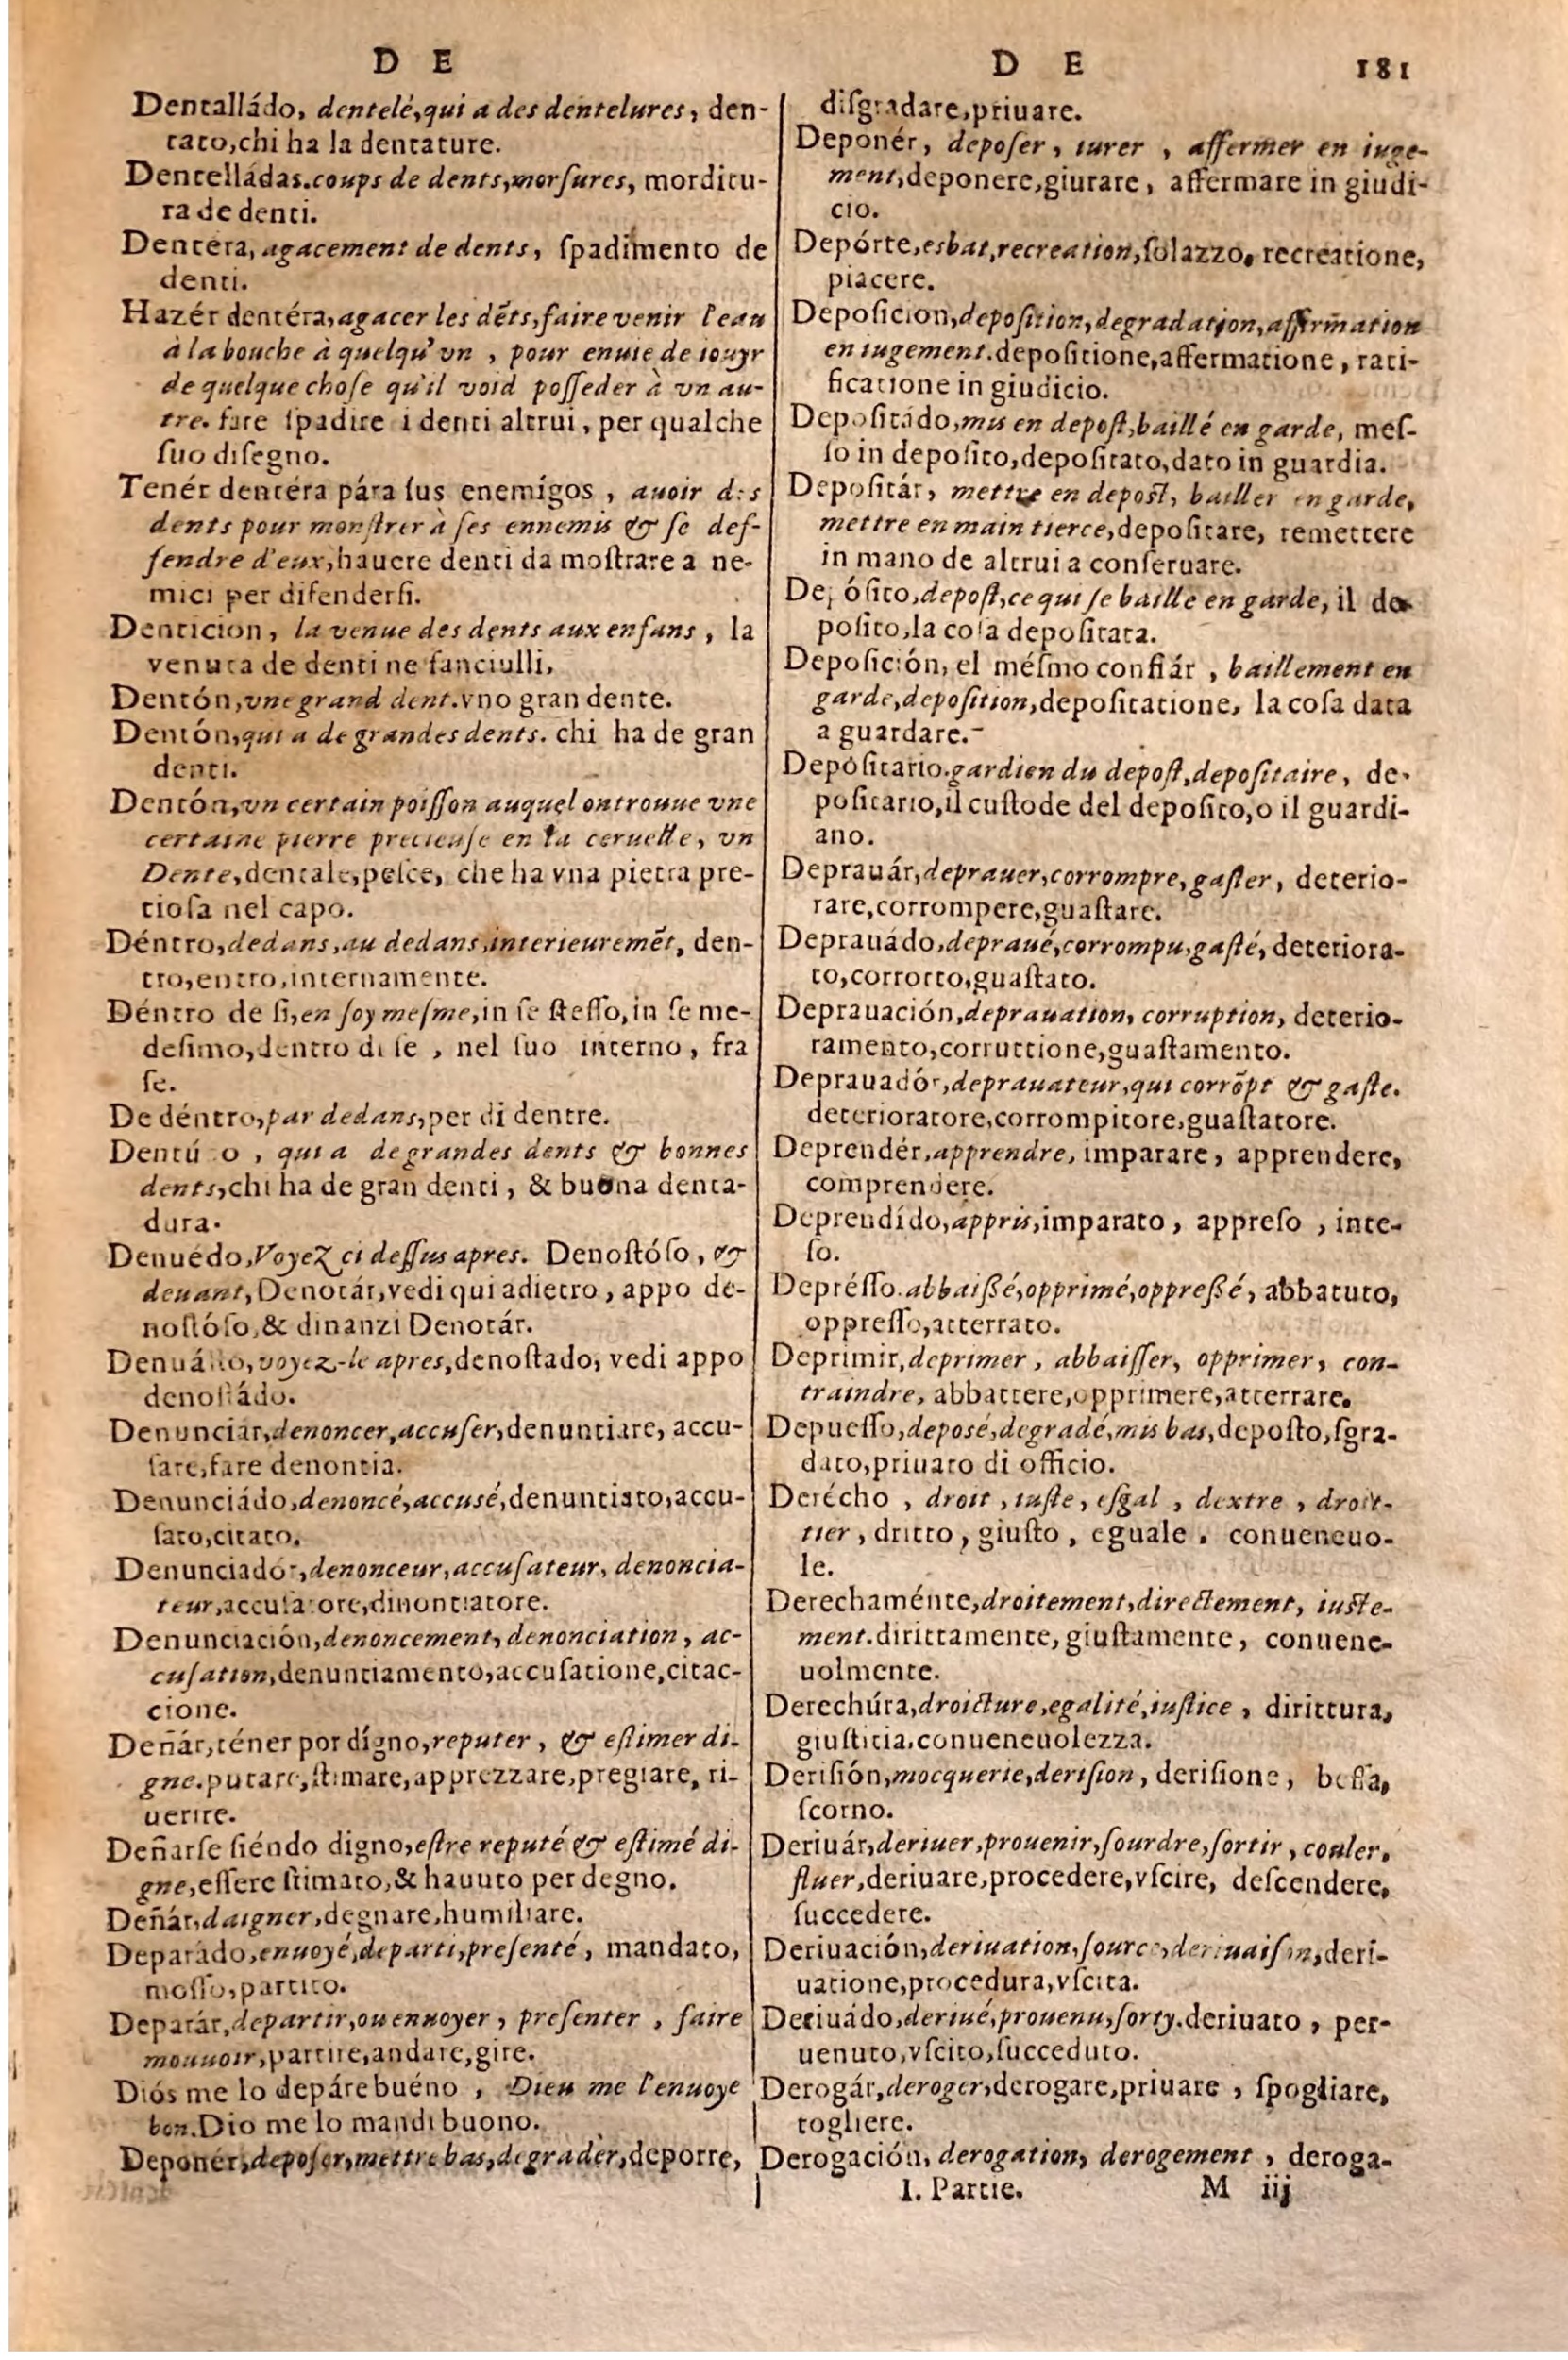 D E
Dentalládo, dentelé,qui a des dentelures, den-
tato,chi ha la dentature.
Dentelládas.coups de dents,morſures, morditu-
ra de denti.
Dentéra, agacement de dents, ſpadimento de
denti.
Hazér dentéra,agacer les dẽts,faire venir l'eau
à la bouche à quelqu'vn , pour enuie de iouyr
de quelque choſe qu'il void poſſeder à vn au-
tre. fare ſpadire i denti altrui, per qualche
ſuo diſegno.
Tenér dentéra pára ſus enemígos , auoir des
dents pour monſtrer à ſes ennemis & ſe def-
fendre d'eux,hauere denti da moſtrare a ne-
mici per difenderſi.
Denticion, la venue des dents aux enfans, la
venuta de denti ne fanciulli,
Dentón,vne grand dent.vno gran dente.
Dentón,qui a de grandes dents. chi ha de gran
denti.
Dentón,vn certain poiſſon auquel on trouue vne
certaine pierre precieuſe en la ceruelle, vn
Dente,dentale,peſce, che ha vna pietra pre-
tioſa nel capo.
Déntro,dedans,au dedans,interieuremẽt, den-
tro,entro,internamente.
Déntro de ſi,en ſoy meſme,in ſe ſteſſo,in ſe me-
deſimo,dentro di ſe , nel ſuo interno, fra
ſe.
De déntro,par dedans,per di dentre.
Dentú o , qui a de grandes dents & bonnes
dents,chi ha de gran denti, & buona denta-
dura.
Denuedo,Voyez ci deſſus apres. Denoſtóſo, &
deuant,Denotár,vedi qui adietro, appo de-
noſtóſo,& dinanzi Denotár.
voyez-le apres,denoſtado, vedi appo
denoſtádo.
Denunciar,denoncer,accuſer,denuntiare, accu-
ſare,fare denontia.
Denunciádo,denoncé,accusé,denuntiato,accu-
ſato,citato.
Denunciadór,denonceur,accuſateur, denoncia-
teur,accuſatore,dinontiatore.
Denunciación,denoncement,denonciation, ac-
cuſation,denuntiamento,accuſatione,citac-
cione.
Deñár,téner por dígno,reputer, & eſtimer di-
gne.putare,ſtimare,apprezzare,pregiare, ri-
uerire.
Deñarſe ſiéndo digno,eſtre reputé & eſtimé di-
gne,eſſere ſtimato,& hauuto per degno.
Deñár,daigner,degnare,humiliare.
Deparádo,enuoyé,departi,preſenté, mandato,
moſſo,partito.
Deparár,departir,ou enuoyer, preſenter , faire
mouuoir,partire,andare,gire.
Diós me lo depáre buéno , Dieu me l'enuoye
bon.Dio me lo mandi buono.
Deponér,depoſer,mettre bas,degrader,deporre,
D E 181
diſgradare,priuare.
Deponér, depoſer, iurer , affermer en iuge-
ment,deponere,giurare, affermare in giudi-
cio.
Depórte,esbat,recreation,ſolazzo, recreatione,
piacere.
Depoſicion,depoſition,degradation,affirmation
en iugement.depoſitione,affermatione, rati-
ficatione in giudicio.
Depoſitádo,mis en depoſt,baillé en garde, meſ-
ſo in depoſito,depoſitato,dato in guardia.
Depoſitár, mettre en depoſt, bailler en garde,
mettre en main tierce,depoſitare, remettere
in mano de altrui a conſeruare.
Depóſito,depoſt,ce qui ſe baille en garde, il de-
poſito,la coſa depoſitata.
Depoſición, el méſmo confiár , baillement en
garde,depoſition,depoſitatione, la coſa data
a guardare.
Depóſitario.gardien du depoſt,depoſitaire, de-
poſitario,il cuſtode del depoſito,o il guardi-
ano.
Deprauár,deprauer,corrompre,gaſter, deterio-
rare,corrompere,guaſtare.
Deprauádo,depraué,corrompu,gaſté,deteriora-
to,corrotto,guaſtato.
Deprauación,deprauation, corruption, deterio-
ramento,corruttione,guaſtamento.
Deprauadór,deprauateur,qui corrõpt & gaſte.
deterioratore,corrompitore,guaſtatore.
Deprendér,apprendre, imparare, apprendere,
comprendere.
Deprendído,appris,imparato, appreſo , inte-
ſo.
Depréſſo.abbaißé,opprimé,oppreßé, abbatuto,
oppreſſo,atterrato.
Deprimir,deprimer, abbaiſſer, opprimer, con-
traindre, abbattere,opprimere,atterrare.
Depueſſo,deposé,degradé,mis bas,depoſto,ſgra-
dato,priuato di officio.
Derécho , droit, iuſte, eſgal , dextre , droit-
tier, dritto, giuſto, eguale , conueneuo-
le.
Derechaménte,droitement,directement, iuſte-
ment.dirittamente,giuſtamente, conuene-
uolmente.
Derechúra,droicture,egalité,iuſtice , dirittura,
giuſtitia,conueneuolezza.
Deriſión,mocquerie,deriſion, deriſione, beffa,
ſcorno.
Deriuár,deriuer,prouenir,ſourdre,ſortir, couler,
fluer,deriuare,procedere,vſcire, deſcendere,
ſuccedere.
Deriuación,deriuation,ſource,deriuaiſon,deri-
uatione,procedura,vſcita.
Deriuádo,deriué,prouenu,ſorty.deriuato, per-
uenuto,vſcito,ſucceduto.
Derogár,deroger,derogare,priuare , ſpogliare,
togliere.
Derogación, derogation, derogement , deroga-
I. Partie. M iij